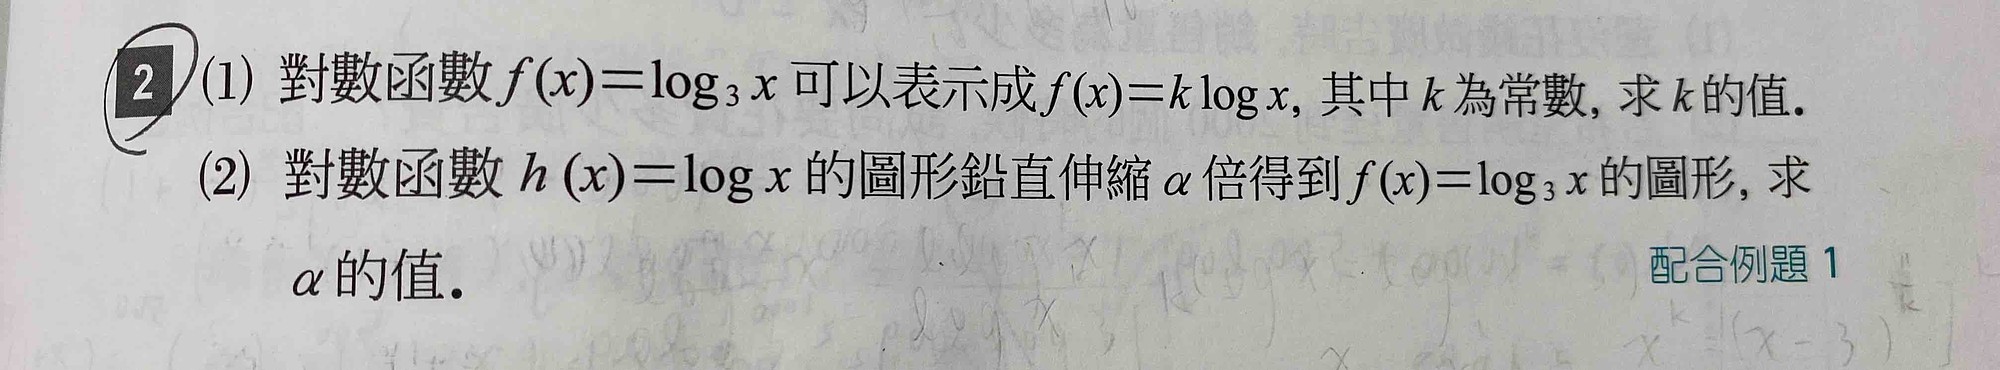 2 (1) 對數函數 f(x)=log₃ x 可以表示成 f(x)=k log x, 其中 k 為常數, 求 k 的值.
(2) 對數函數 h (x)=log x 的圖形鉛直伸縮 α 倍得到 f(x)=log₃ x 的圖形, 求
α 的值.
配合例題 1